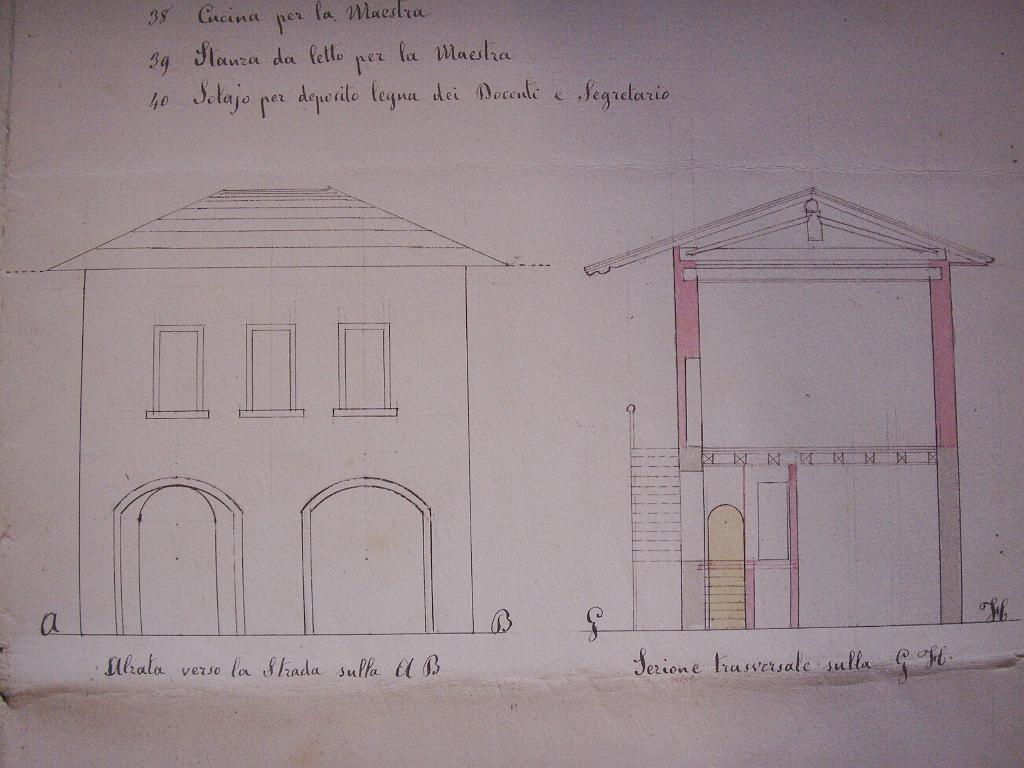 38 Cucina per la Maestra
39 Stanza da letto per la Maestra
40 Solajo per deposito legna dei Docenti e Segretario
A B
G H
Alzata verso la Strada sulla A B
Sezione trasversale sulla G H.